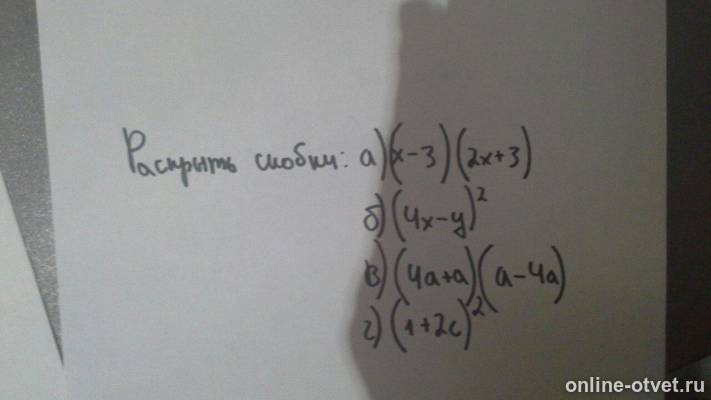 Раскрыть скобки: а) (x-3)(2x+3)
б) (4x-y)²
в) (4a+a)(a-4a)
г) (1+2c)²
online-otvet.ru